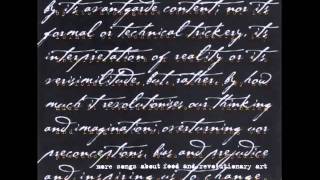 By its avantgarde content; nor its
formal or technical trickery; its
interpretation of reality or its
verisimilitude, but rather, by how
much it revolutionises our thinking
and imagination; overturning our
preconceptions, bias and prejudice
more songs about food and revolutionary art
and inspiring us to change